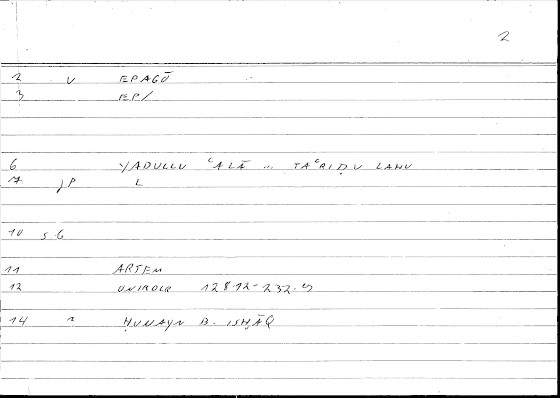 2
2 v EPAGŌ
3 EP/
6 YADULLU ʿALĀ ... TAʿRIḌU LAHU
7 P L
10 S.G
11 ARTEM
12 ONIROCR 12812-232.5
14 " ḤUNAYN B. ISḤĀQ